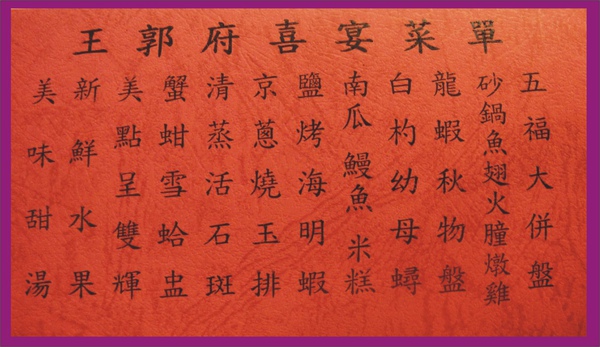 王郭府喜宴菜單
五福大併盤
砂鍋魚翅火膧燉雞
龍蝦秋物盤
白杓幼母蟳
南瓜鰻魚米糕
鹽烤海明蝦
京蔥燒玉排
清蒸活石斑
蟹蚶雪蛤盅
美點呈雙輝
新鮮水果
美味甜湯